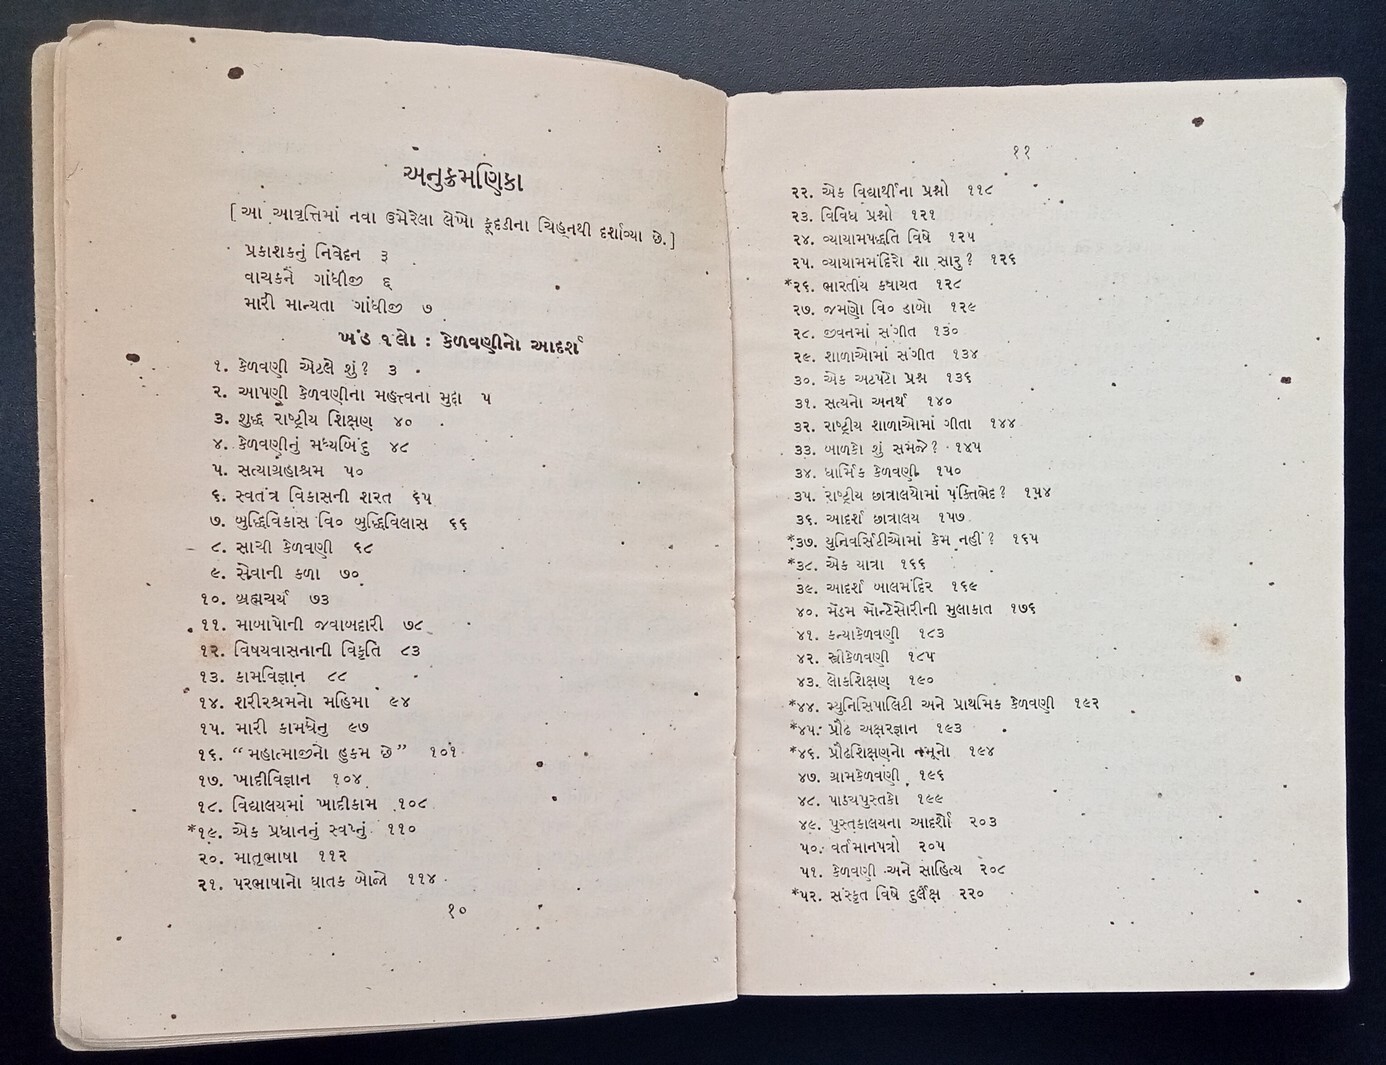 અનુક્રમણિકા
[ આ આવૃત્તિમાં નવા ઉમેરેલા લેખો ફૂદડીના ચિહ્નથી દર્શાવ્યા છે. ]
પ્રકાશકનું નિવેદન ૩
વાચકને ગાંધીજી ૬
મારી માન્યતા ગાંધીજી ૭
ખંડ ૧લો : કેળવણીનો આદર્શ
૧. કેળવણી એટલે શું? ૩
૨. આપણી કેળવણીના મહત્ત્વના મુદ્દા ૫
૩. શુદ્ધ રાષ્ટ્રીય શિક્ષણ ૪૦
૪. કેળવણીનું મધ્યબિંદુ ૪૮
૫. સત્યાગ્રહાશ્રમ ૫૦
૬. સ્વતંત્ર વિકાસની શરત ૬૫
૭. બુદ્ધિવિકાસ વિ૦ બુદ્ધિવિલાસ ૬૬
૮. સાચી કેળવણી ૬૮
૯. સેવાની કળા ૭૦
૧૦. બ્રહ્મચર્ય ૭૩
૧૧. માબાપોની જવાબદારી ૭૮
૧૨. વિષયવાસનાની વિકૃતિ ૮૩
૧૩. કામવિજ્ઞાન ૮૮
૧૪. શરીરશ્રમનો મહિમા ૯૪
૧૫. મારી કામધેનુ ૯૭
૧૬. “મહાત્માજીનો હુકમ છે” ૧૦૧
૧૭. ખાદીવિજ્ઞાન ૧૦૪
૧૮. વિદ્યાલયમાં ખાદીકામ ૧૦૮
*૧૯. એક પ્રધાનનું સ્વપ્નું ૧૧૦
૨૦. માતૃભાષા ૧૧૨
૨૧. પરભાષાનો ઘાતક બોજો ૧૧૪
૧૦
૧૧
૨૨. એક વિદ્યાર્થીના પ્રશ્નો ૧૧૮
૨૩. વિવિધ પ્રશ્નો ૧૨૧
૨૪. વ્યાયામપદ્ધતિ વિષે ૧૨૫
૨૫. વ્યાયામમંદિરો શા સારુ? ૧૨૬
*૨૬. ભારતીય કવાયત ૧૨૮
૨૭. જમણો વિ૦ ડાબો ૧૨૯
૨૮. જીવનમાં સંગીત ૧૩૦
૨૯. શાળાઓમાં સંગીત ૧૩૪
૩૦. એક અટપટો પ્રશ્ન ૧૩૬
૩૧. સત્યનો અનર્થ ૧૪૦
૩૨. રાષ્ટ્રીય શાળાઓમાં ગીતા ૧૪૪
૩૩. બાળકો શું સમજે? ૧૪૫
૩૪. ધાર્મિક કેળવણી ૧૫૦
૩૫. રાષ્ટ્રીય છાત્રાલયોમાં પંક્તિભેદ? ૧૫૪
૩૬. આદર્શ છાત્રાલય ૧૫૭
*૩૭. યુનિવર્સિટીઓમાં કેમ નહીં? ૧૬૫
*૩૮. એક યાત્રા ૧૬૬
૩૯. આદર્શ બાલમંદિર ૧૬૯
૪૦. મૅડમ મૉન્ટેસોરીની મુલાકાત ૧૭૬
૪૧. કન્યાકેળવણી ૧૮૩
૪૨. સ્ત્રીકેળવણી ૧૮૫
૪૩. લોકશિક્ષણ ૧૯૦
*૪૪. મ્યુનિસિપાલિટી અને પ્રાથમિક કેળવણી ૧૯૨
*૪૫. પ્રૌઢ અક્ષરજ્ઞાન ૧૯૩
*૪૬. પ્રૌઢશિક્ષણનો નમૂનો ૧૯૪
૪૭. ગ્રામકેળવણી ૧૯૬
૪૮. પાઠ્યપુસ્તકો ૧૯૯
૪૯. પુસ્તકાલયના આદર્શો ૨૦૩
૫૦. વર્તમાનપત્રો ૨૦૫
૫૧. કેળવણી અને સાહિત્ય ૨૦૮
*૫૨. સંસ્કૃત વિષે દુર્લક્ષ ૨૨૦